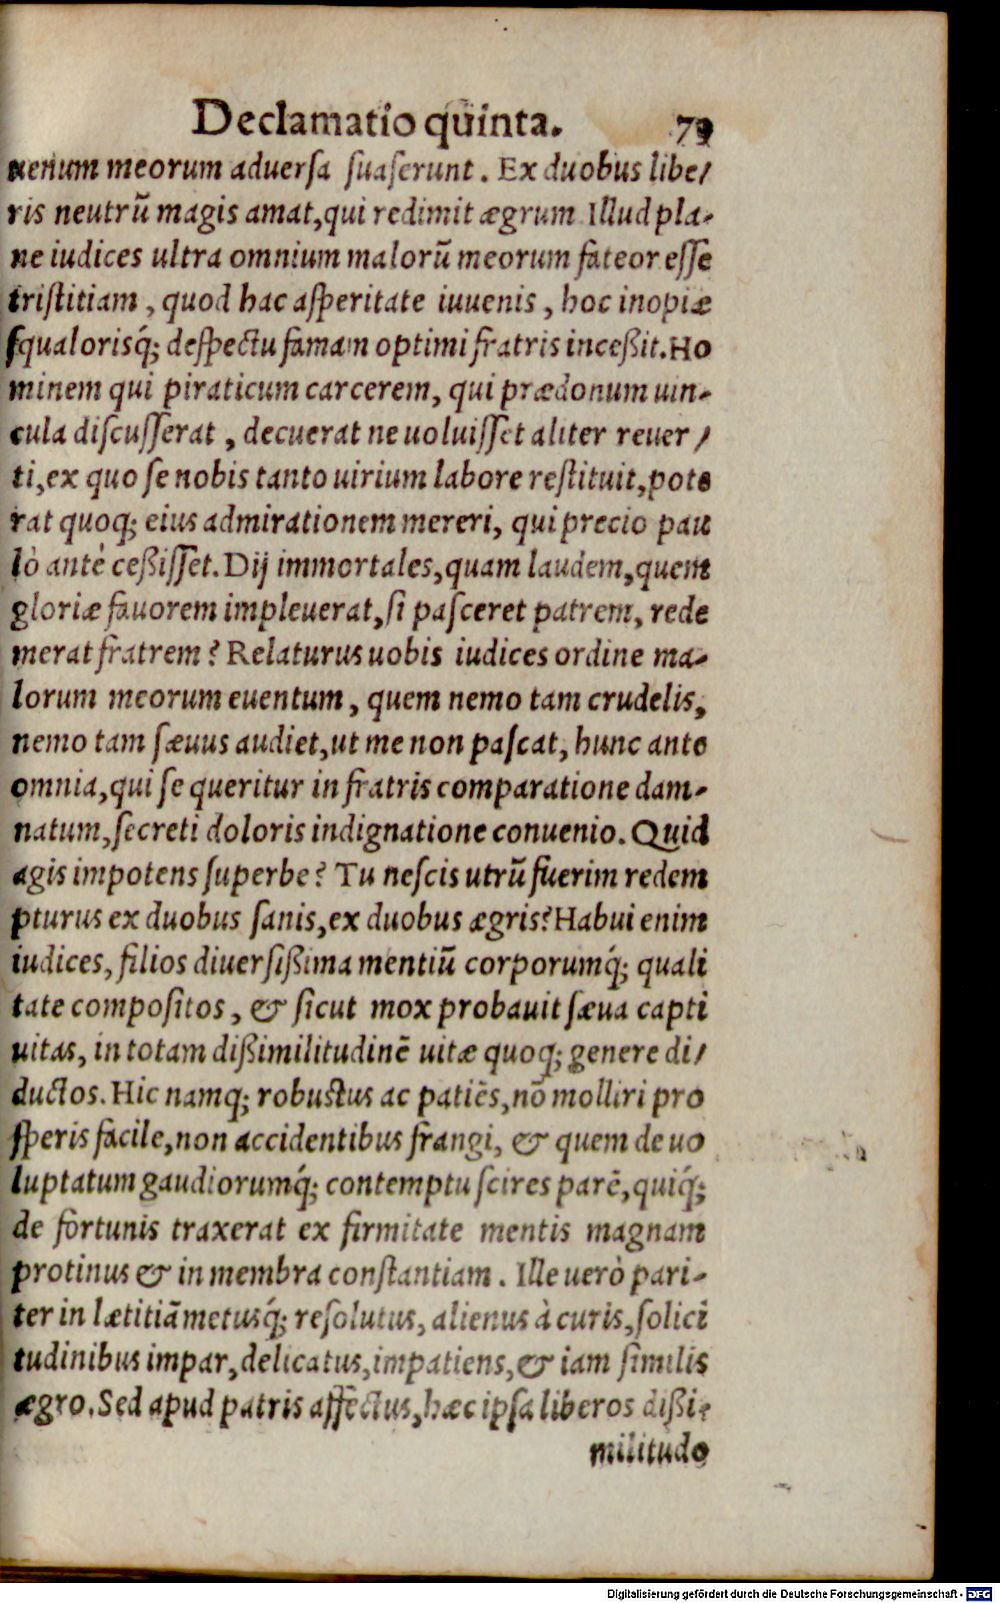 Declamatio quinta. 79
uenum meorum aduersa suaserunt. Ex duobus libe/
ris neutrũ magis amat, qui redimit ægrum Illud pla-
ne iudices ultra omnium malorũ meorum fateor esse
tristitiam, quod hac asperitate iuuenis, hoc inopiæ
squalorisq́; despectu famam optimi fratris inceßit. Ho
minem qui piraticum carcerem, qui prædonum uin-
cula discusserat, decuerat ne uoluisset aliter reuer/
ti, ex quo se nobis tanto uirium labore restituit, pote
rat quoq; eius admirationem mereri, qui precio pau
lò antè ceßisset. Dij immortales, quam laudem, quem
gloriæ fauorem impleuerat, si pasceret patrem, rede
merat fratrem? Relaturus uobis iudices ordine ma-
lorum meorum euentum, quem nemo tam crudelis,
nemo tam sæuus audiet, ut me non pascat, hunc ante
omnia, qui se queritur in fratris comparatione dam-
natum, secreti doloris indignatione conuenio. Quid
agis impotens superbe? Tu nescis utrũ fuerim redem
pturus ex duobus sanis, ex duobus ægris? Habui enim
iudices, filios diuersißima mentiũ corporumq́; quali
tate compositos, & sicut mox probauit sæua capti
uitas, in totam dißimilitudinẽ uitæ quoq; genere di/
ductos. Hic namq; robustus ac patiẽs, nõ molliri pro
speris facile, non accidentibus frangi, & quem de uo
luptatum gaudiorumq́; contemptu scires parẽ, quiq́;
de fortunis traxerat ex firmitate mentis magnam
protinus & in membra constantiam. Ille uerò pari-
ter in lætitiã metusq́; resolutus, alienus à curis, solici
tudinibus impar, delicatus, impatiens, & iam similis
ægro. Sed apud patris affectus, hæc ipsa liberos dißi-
militudo
Digitalisierung gefördert durch die Deutsche Forschungsgemeinschaft - DFG